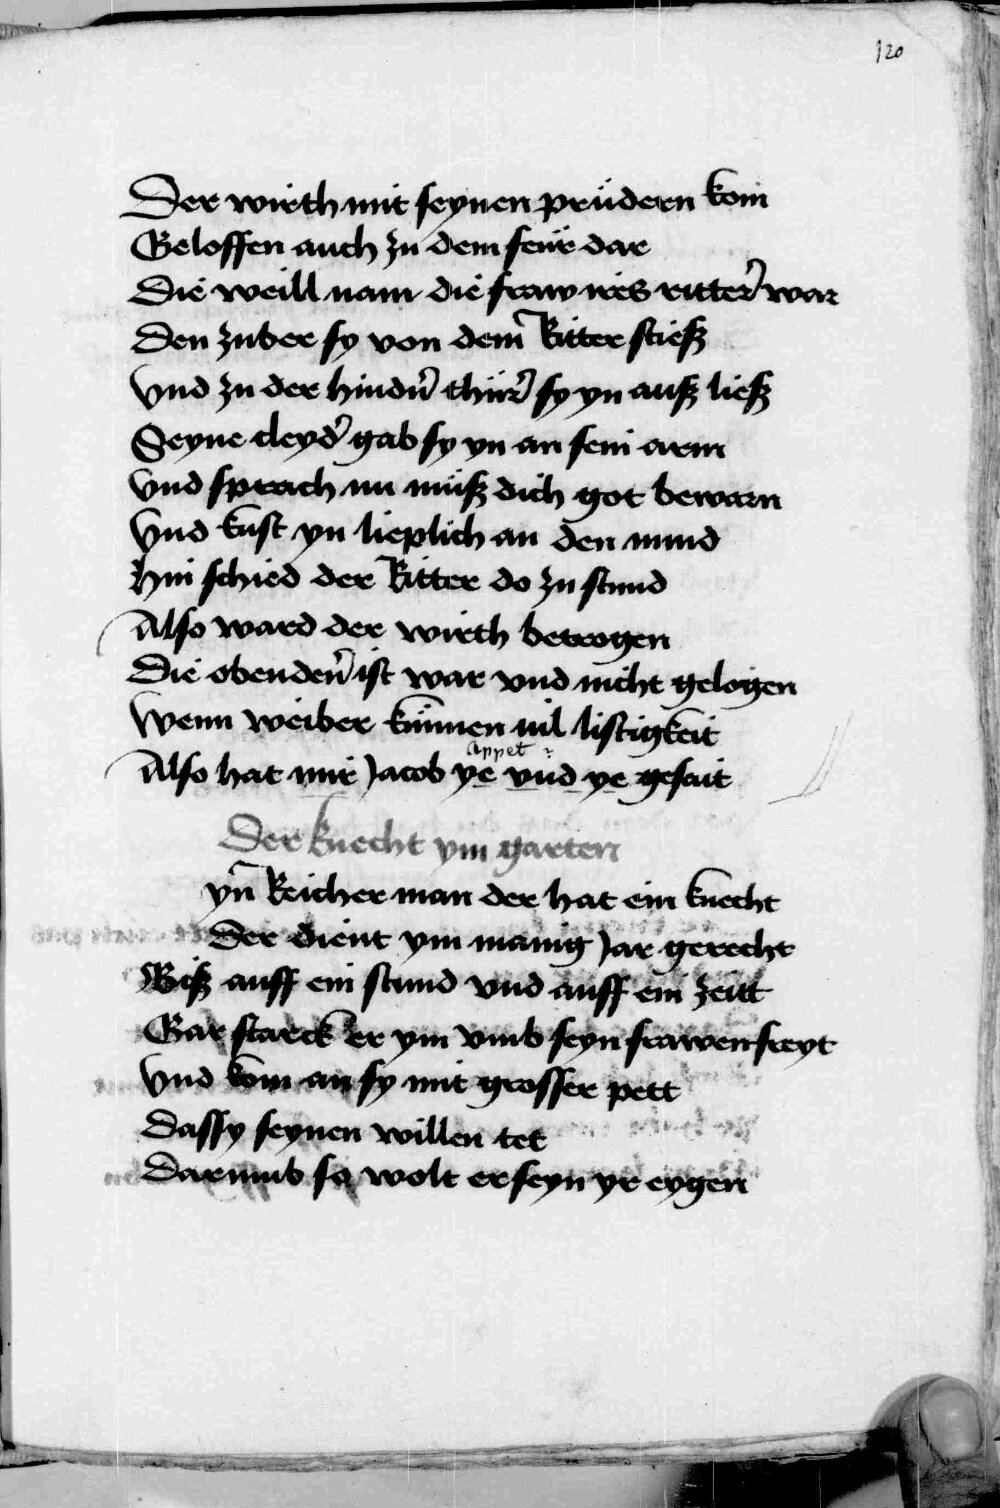 120
Der wirth mit seynen prüdern kom
Geloffen auch zu dem feür dar
Die weill nam die fraw ires ritters war
Den zuber sy von dem Ritter stieß
Vnd zu der hindern thür sy yn auß ließ
Seyne cleyder gab sy yn an sein arm
Vnd sprach nu müß dich got bewarn
Vnd kust yn lieplich an den mund
Hin schied der Ritter do zu stund
Also ward der wirth betrogen
Die obendeur ist war vnd nicht gelogen
Wenn weiber künnen uil listigkeit
appet
Also hat mir Jacob ye vnd ye geseit
Der knecht ym garten
yn Reicher man der hat ein knecht
Der dient ym manig Jar gerecht
Biß auff ein stund vnd auff ein zeitt
Gar starck er ym vmb seyn frawen freyt
Vnd kom an sy mit grosser pett
Dassy seynen willen tet
Darumb so wolt er seyn yr eygen